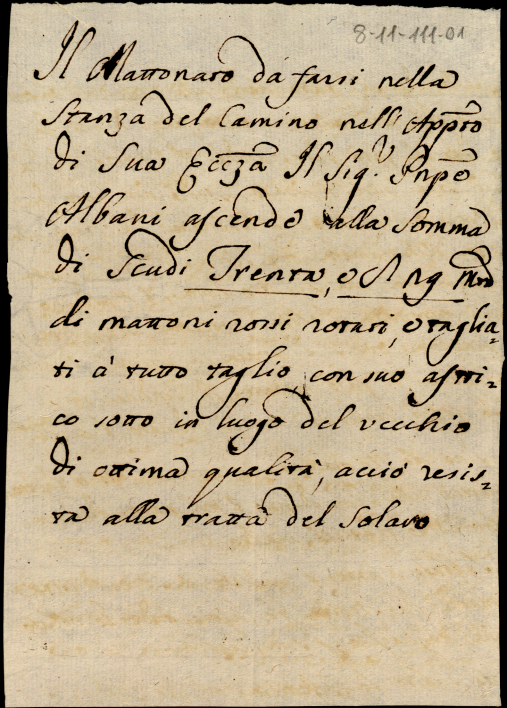 8-11-111-01
Il Mattonato da farsi nella
Stanza del Camino nell' Appṝto
di Sua Ecc̃za Il Sigr. Pnpe
Albani ascende alla somma
di Scudi Trenta, e
di mattoni rossi rotati, e taglia=
ti à tutto taglio con suo astri=
co sotto in luogo del vecchio
di ottima qualità, acciò resis=
ta alla tratta del Solaro